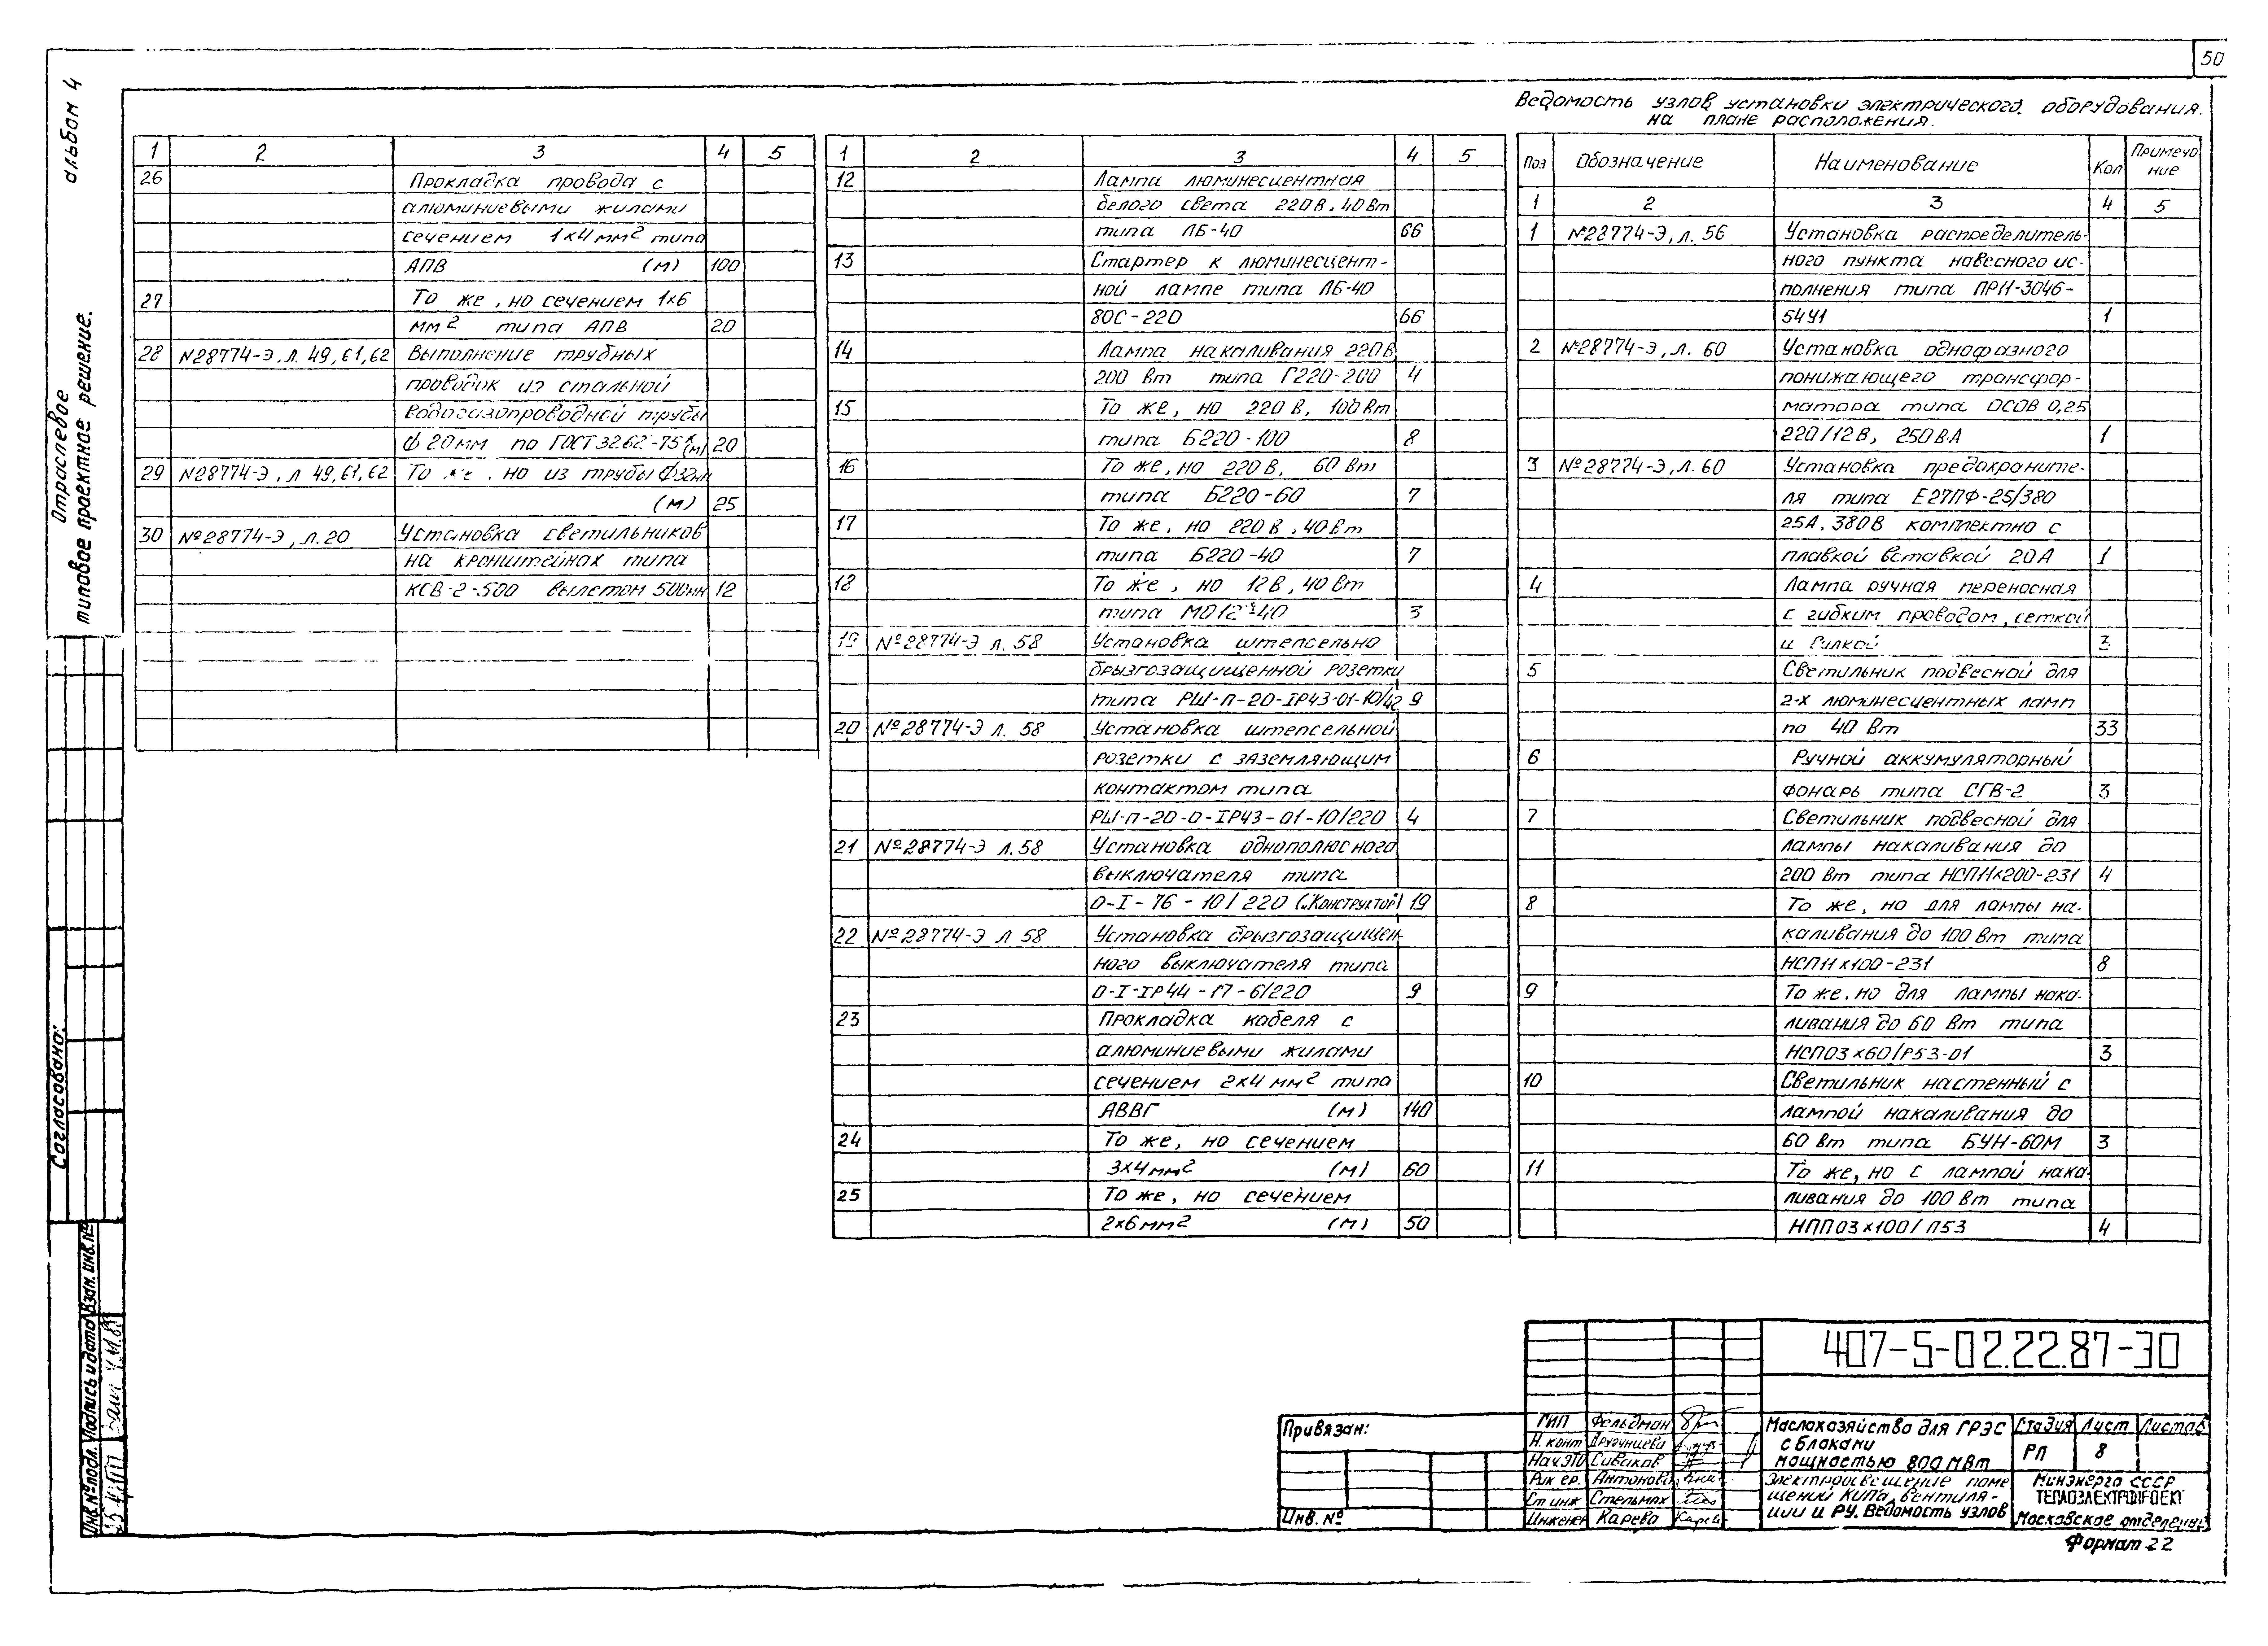 50
альбом 4
Отраслевое
типовое проектное решение.
Ведомость узлов установки электрического оборудования
на плане расположения.
Поз Обозначение Наименование Кол Примеча
ние
1 2 3 4 5
1 №28774-Э, л. 56 Установка распределитель-
ного пункта навесного ис-
полнения типа ПР11-3046-
54У1 1
2 №28774-Э, л. 60 Установка однофазного
понижающего трансфор-
матора типа ОСОВ-0,25
220/12В, 250В.А 1
3 №28774-Э, л. 60 Установка предохраните-
ля типа Е27ПФ-25/380
25А, 380В комплектно с
плавкой вставкой 20А 1
4 Лампа ручная переносная
с гибким проводом, сеткой
и вилкой 3
5 Светильник подвесной для
2-х люминесцентных ламп
по 40 Вт 33
6 Ручной аккумуляторный
фонарь типа СГВ-2 3
7 Светильник подвесной для
лампы накаливания до
200 Вт типа НСП11х200-231 4
8 То же, но для лампы на-
каливания до 100 Вт типа
НСП11х100-231 8
9 То же, но для лампы нака-
ливания до 60 Вт типа
НСП03х60/Р53-01 3
10 Светильник настенный с
лампой накаливания до
60 Вт типа БУН-60М 3
11 То же, но с лампой нака-
ливания до 100 Вт типа
НПП03х100/П53 4
1 2 3 4 5
12 Лампа люминесцентная
белого света 220В, 40Вт
типа ЛБ-40 66
13 Стартер к люминесцент-
ной лампе типа ЛБ-40
80С-220 66
14 Лампа накаливания 220В
200 Вт типа Г220-200 4
15 То же, но 220 В, 100 Вт
типа Б220-100 8
16 То же, но 220 В, 60 Вт
типа Б220-60 7
17 То же, но 220 В, 40 Вт
типа Б220-40 7
18 То же, но 12 В, 40 Вт
типа МО12 40 3
19 №28774-Э л. 58 Установка штепсельно
брызгозащищенной розетки
типа РШ-П-20-IР43-01-10/42 9
20 №28774-Э л. 58 Установка штепсельной
розетки с заземляющим
контактом типа
РШ-П-20-0-IР43-01-10/220 4
21 №28774-Э л. 58 Установка однополюсного
выключателя типа
0-I-76-10/220 („Конструктор") 19
22 №28774-Э л 58 Установка брызгозащищен-
ного выключателя типа
0-I-IР44-17-6/220 9
23 Прокладка кабеля с
алюминиевыми жилами
сечением 2х4 мм² типа
АВВГ (м) 140
24 То же, но сечением
3х4 мм² (м) 60
25 То же, но сечением
2х6 мм² (м) 50
1 2 3 4 5
26 Прокладка провода с
алюминиевыми жилами
сечением 1х4 мм² типа
АПВ (м) 100
27 То же, но сечением 1х6
мм² типа АПВ 20
28 N28774-Э, л. 49, 61, 62 Выполнение трубных
проводок из стальной
водогазопроводной трубы
ф 20мм по ГОСТ 3262-75 (м) 20
29 N28774-Э, л 49, 61, 62 То же, но из трубы
(м) 25
30 №28774-Э, л. 20 Установка светильников
на кронштейнах типа
КСВ-2-500 вылетом 500мм 12
Согласовано:
Инв. № подл. Подпись и дата Взам. инв. №
Привязан:
Инв. №
407-5-02.22.87-ЭО
ГИП Фельдман
Н. конт
Нач ЭТО Сиваков
Рук гр. Антонова
Ст инж Стельмах
Инженер Карева
Маслохозяйство для ГРЭС
с блоками
мощностью 800 МВт
Стадия Лист Листов
РП 8
Электроосвещение поме
щений КИПа, вентиля-
ции и РУ. Ведомость узлов
Минэнерго СССР
ТЕПЛОЭЛЕКТРОПРОЕКТ
Московское отделение
Формат 22